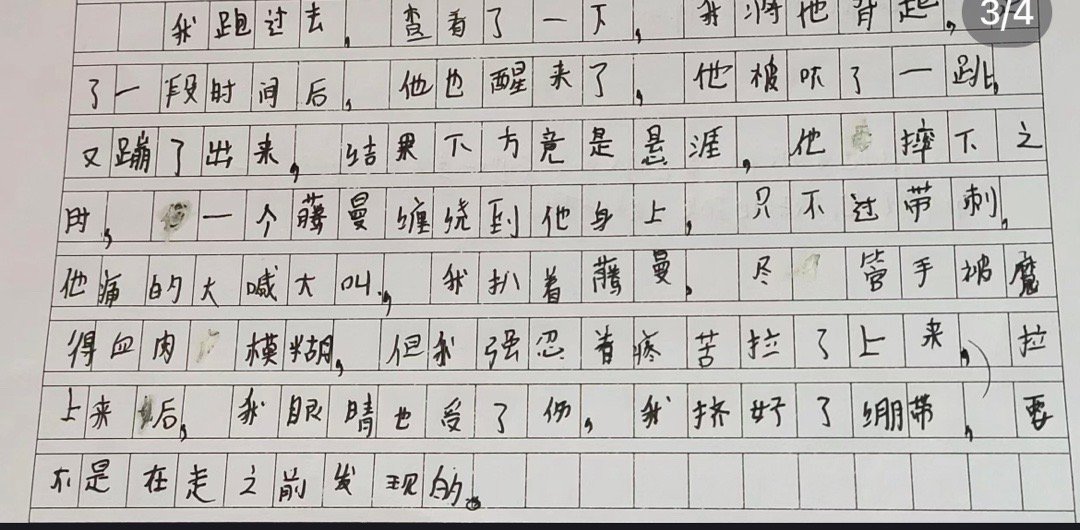 3/4
我跑过去，查看了一下，我将他背起，
了一段时间后，他也醒来了，他被吓了一跳，
又蹦了出来，结果下方竟是悬涯，他摔下之
时，一个藤曼缠绕到他身上，只不过带刺，
他痛的大喊大叫，我扒着藤曼，尽管手被魔
得血肉模糊，但我强忍着疼苦拉了上来，拉
上来后，我眼睛也受了伤，我挤好了绷带，要
不是在走之前发现的。